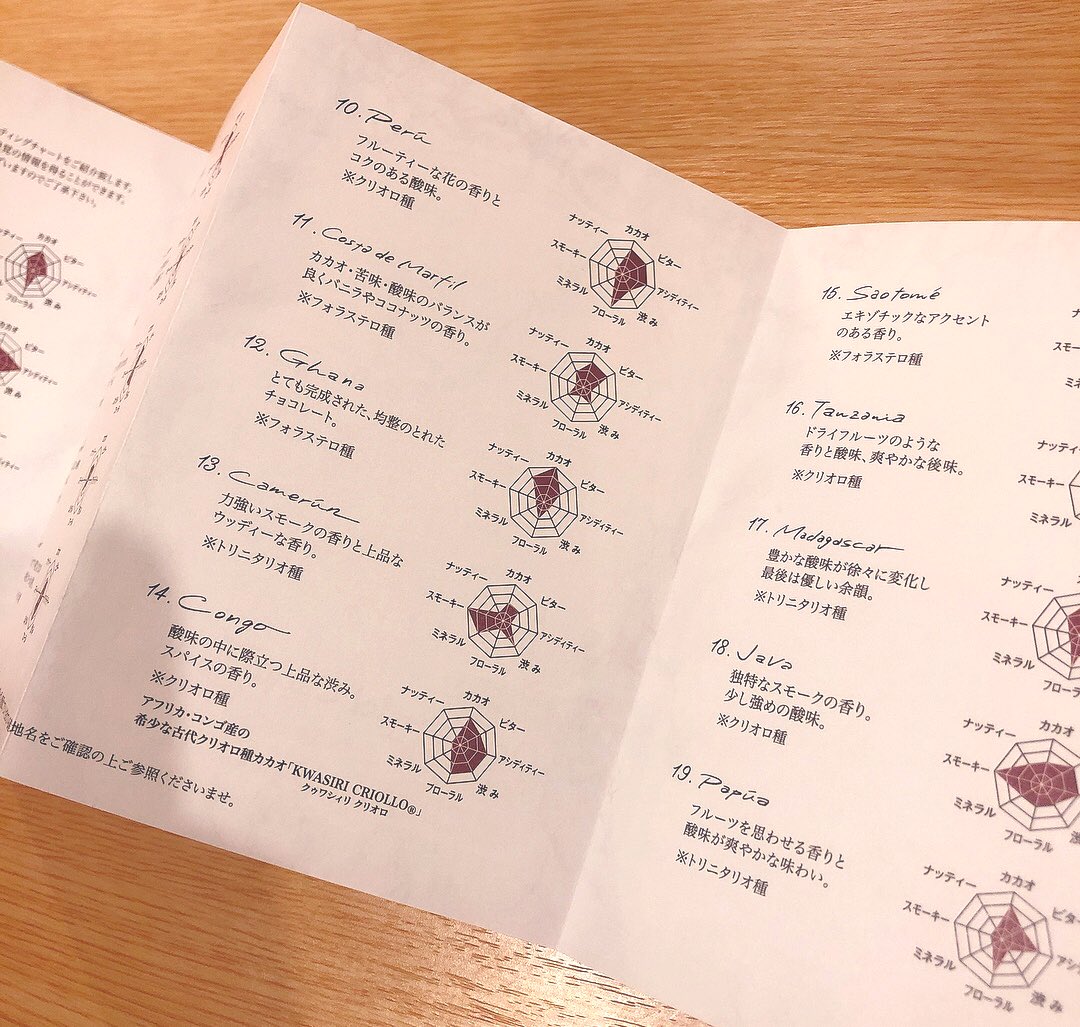 ティングチャートをご紹介致します。
覚の情報を得ることができます。
いますのでご了承下さい。
カカオ
ビター
アシディティー
渋み
フローラル
カカオ
ビター
アシディティー
渋み
10. Perú
フルーティーな花の香りと
コクのある酸味。
※クリオロ種
カカオ
ナッティー
ビター
スモーキー
アシディティー
ミネラル
渋み
フローラル
11. Costa de Marfil
カカオ・苦味・酸味のバランスが
良くバニラやココナッツの香り。
※フォラステロ種
カカオ
ナッティー
ビター
スモーキー
アシディティー
ミネラル
渋み
フローラル
12. Ghana
とても完成された、均整のとれた
チョコレート。
※フォラステロ種
カカオ
ナッティー
ビター
スモーキー
アシディティー
ミネラル
渋み
フローラル
13. Camerún
力強いスモークの香りと上品な
ウッディーな香り。
※トリニタリオ種
カカオ
ナッティー
ビター
スモーキー
アシディティー
ミネラル
渋み
フローラル
14. Congo
酸味の中に際立つ上品な渋み。
スパイスの香り。
※クリオロ種
アフリカ・コンゴ産の
希少な古代クリオロ種カカオ「KWASIRI CRIOLLO®」
クゥワシィリ クリオロ
カカオ
ナッティー
ビター
スモーキー
アシディティー
ミネラル
渋み
フローラル
地名をご確認の上ご参照くださいませ。
15. Saotomé
エキゾチックなアクセント
のある香り。
※フォラステロ種
16. Tanzania
ドライフルーツのような
香りと酸味、爽やかな後味。
※クリオロ種
スモーキー
ミネラル
17. Madagascar
豊かな酸味が徐々に変化し
最後は優しい余韻。
※トリニタリオ種
ナッティー
スモーキー
ミネラル
18. Java
独特なスモークの香り。
少し強めの酸味。
※クリオロ種
カカオ
ナッティー
スモーキー
ミネラル
フローラル
19. Papúa
フルーツを思わせる香りと
酸味が爽やかな味わい。
※トリニタリオ種
カカオ
ナッティー
ビタ
スモーキー
アシデ
ミネラル
渋み
フローラル